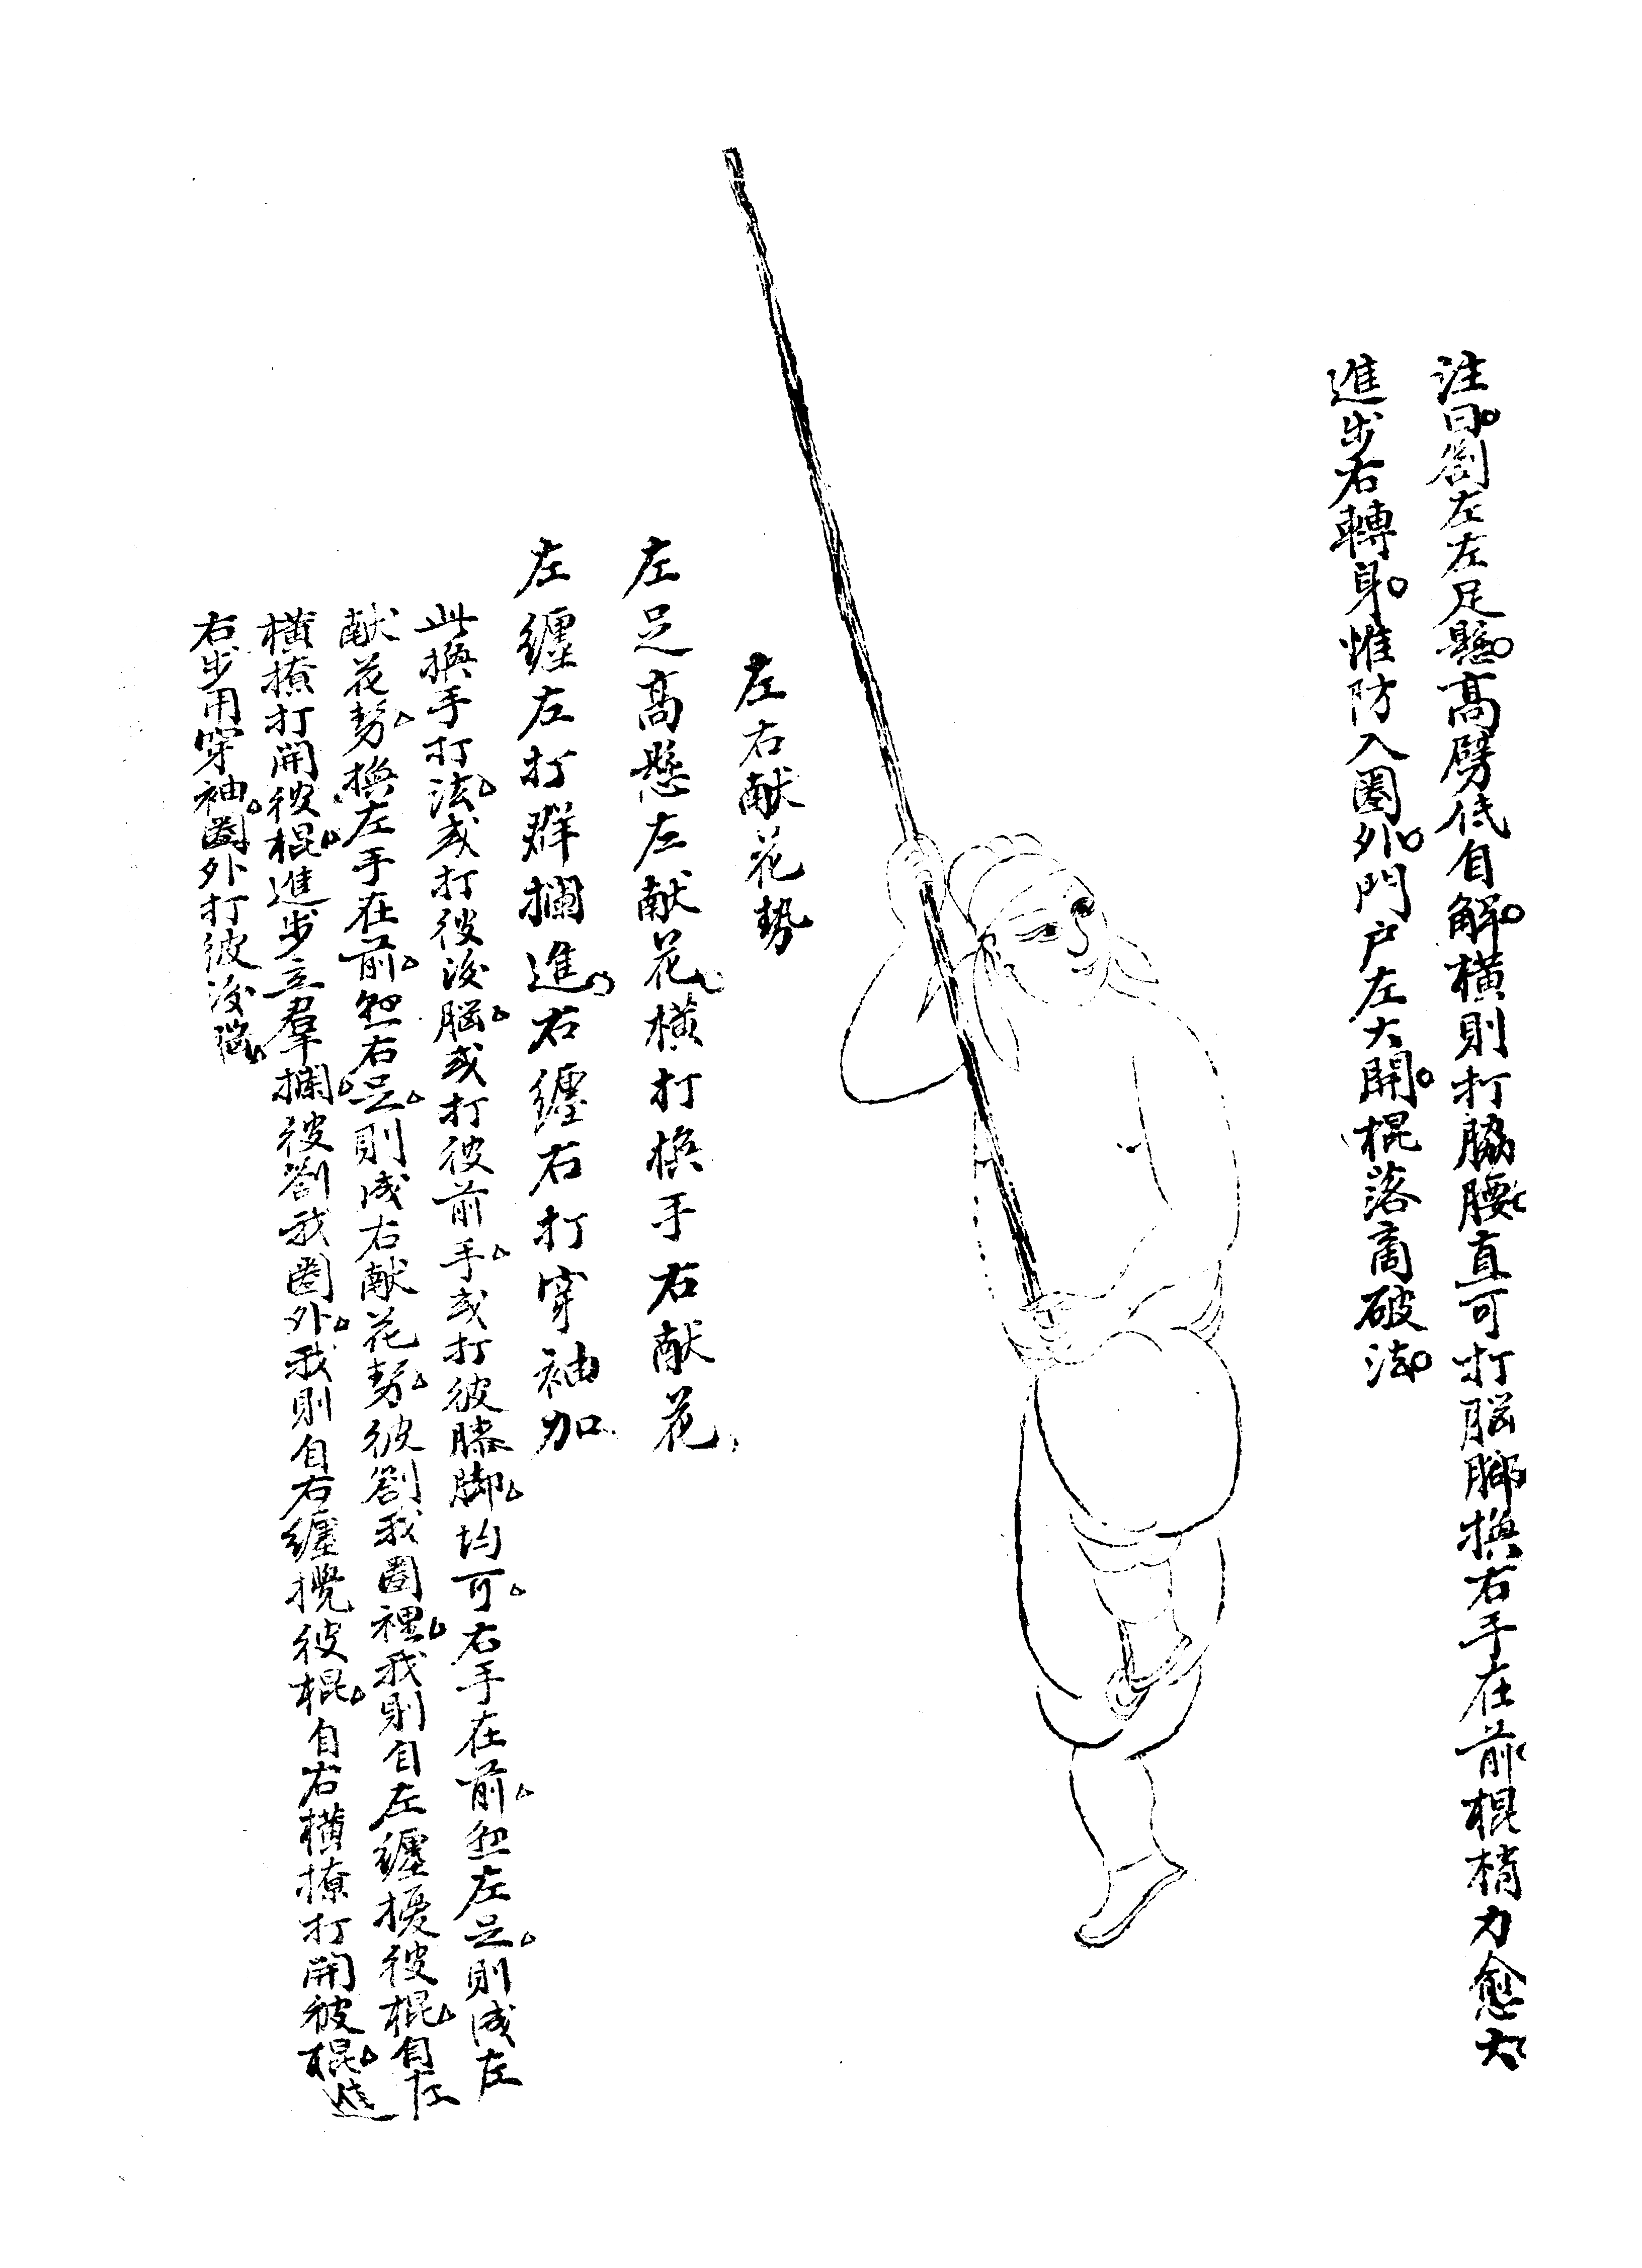 注曰劄左左足懸高劈低自解橫則打脇腰直可打脳脚换右手在前棍梢力愈大
進步右轉身惟防入圈外門户左大開棍落啇破法
左右献花勢
左足高懸左献花橫打换手右献花
左纏左打群攔進右纏右打穿袖加
此换手打法或打彼後脳或打彼前手或打彼膝脚均可右手在前左足則成左
献花勢换左手在前右足則成右献花勢彼劄我圈裡我則自左纏擾彼棍自左
橫撩打開彼棍進步立羣攔彼劄我圈外我則自右纏攪彼棍自右橫撩打開彼棍進
右步用穿袖圈外打彼後脳